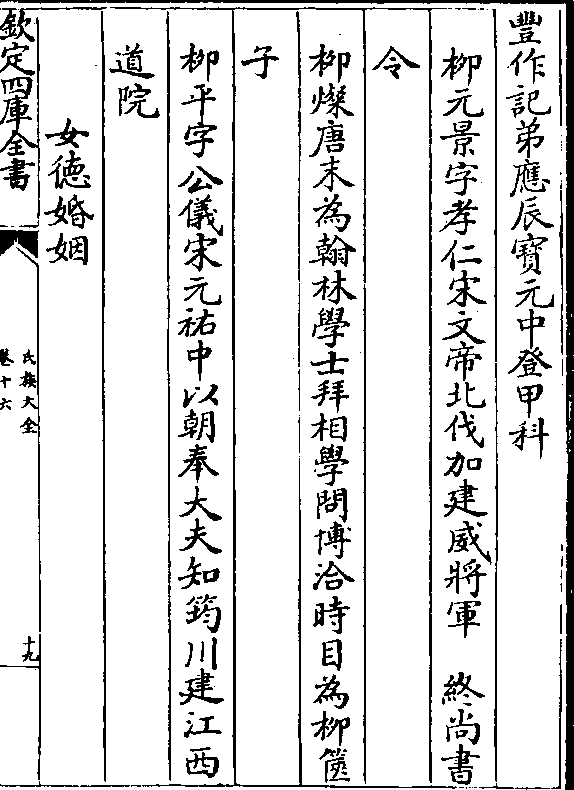 豐作記弟應辰寶元中登甲科
柳元景字孝仁宋文帝北伐加建威將軍　終尚書
令
柳燦唐末為翰林學士拜相學問博洽時目為柳篋
子
柳平字公儀宋元祐中以朝奉大夫知筠川建江西
道院
女徳婚姻
欽定四庫全書
氏族大全
卷十六
十九